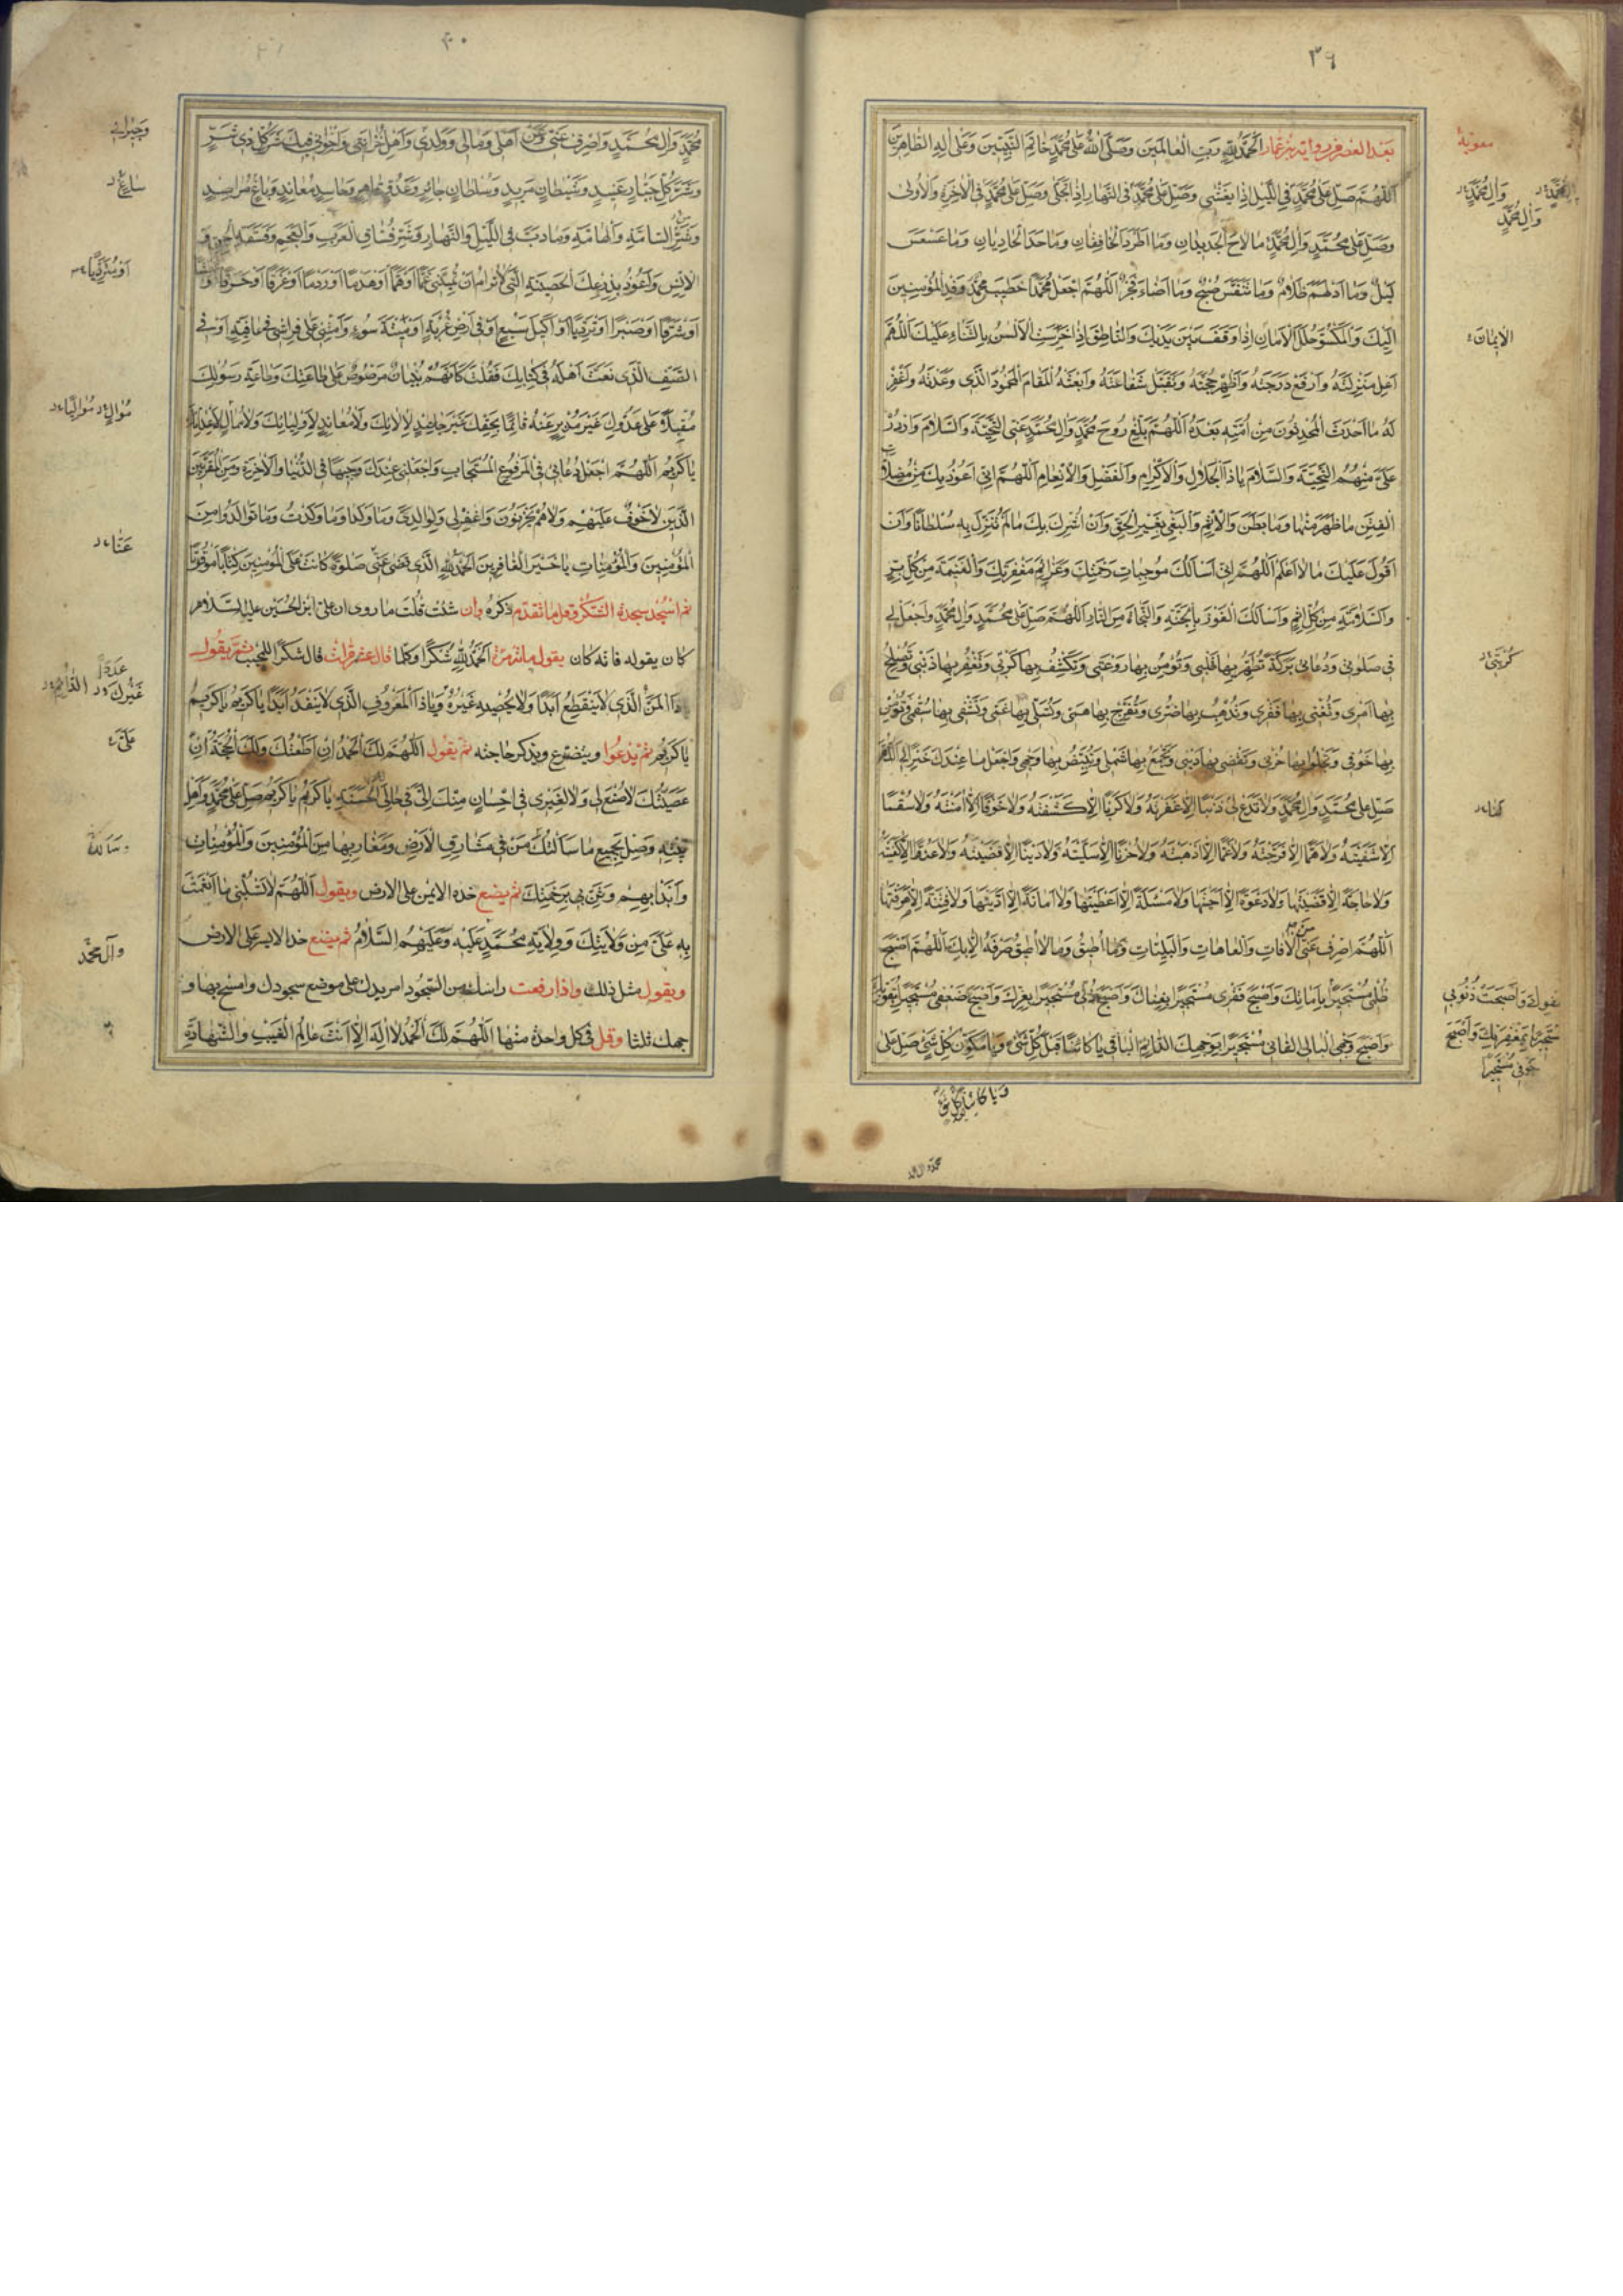 ٣٩
بعد العصر من رواية معوية بن عمار اَلْحَمْدُ لِلّٰهِ رَبِّ الْعالَمينَ وَصَلَّى اللّٰهُ عَلى مُحَمَّدٍ خاتَمِ النَّبِيّينَ وَعَلى الِهِ الطّاهِرينَ
اَللّٰهُمَّ صَلِّ عَلى مُحَمَّدٍ فِى اللَّيْلِ اِذا يَغْشى وَصَلِّ عَلى مُحَمَّدٍ فِى النَّهارِ اِذا تَجَلّى وَصَلِّ عَلى مُحَمَّدٍ فِى الْاخِرَةِ وَالْاُولى
وَصَلِّ عَلى مُحَمَّدٍ وَالِ مُحَمَّدٍ ما لاحَ الْجَديدانِ وَما اطَّرَدَ الْخافِقانِ وَما حَدَا الْحادِيانِ وَما عَسْعَسَ
لَيْلٌ وَما ادْلَهَمَّ ظَلامٌ وَما تَنَفَّسَ صُبْحٌ وَما اَضاءَ فَجْرٌ اَللّٰهُمَّ اجْعَلْ مُحَمَّدًا خَطيبَ وَفْدِ الْمُؤْمِنينَ
اِلَيْكَ وَالْمَكْسُوَّ حُلَلَ الْاَمانِ اِذا وَقَفَ بَيْنَ يَدَيْكَ وَالنّاطِقَ اِذا خَرِسَتِ الْاَلْسُنُ بِالثَّناءِ عَلَيْكَ اَللّٰهُمَّ
اَعْلِ مَنْزِلَتَهُ وَارْفَعْ دَرَجَتَهُ وَاَظْهِرْ حُجَّتَهُ وَتَقَبَّلْ شَفاعَتَهُ وَابْعَثْهُ الْمَقامَ الْمَحْمُودَ الَّذى وَعَدْتَهُ وَاغْفِرْ
لَهُ ما اَحْدَثَ الْمُحْدِثُونَ مِنْ اُمَّتِهِ بَعْدَهُ اَللّٰهُمَّ بَلِّغْ رُوحَ مُحَمَّدٍ وَالِ مُحَمَّدٍ عَنِّى التَّحِيَّةَ وَالسَّلامَ وَارْدُدْ
عَلَىَّ مِنْهُمُ التَّحِيَّةَ وَالسَّلامَ يا ذَا الْجَلالِ وَالْاِكْرامِ وَالْفَضْلِ وَالْاِنْعامِ اَللّٰهُمَّ اِنّى اَعُوذُ بِكَ مِنْ مُضِلّاتِ
الْفِتَنِ ما ظَهَرَ مِنْها وَما بَطَنَ وَالْاِثْمِ وَالْبَغْىِ بِغَيْرِ الْحَقِّ وَاَنْ اُشْرِكَ بِكَ ما لَمْ تُنَزِّلْ بِهِ سُلْطانًا وَاَنْ
اَقُولَ عَلَيْكَ ما لا اَعْلَمُ اَللّٰهُمَّ اِنّى اَسْاَلُكَ مُوجِباتِ رَحْمَتِكَ وَعَزائِمَ مَغْفِرَتِكَ وَالْغَنيمَةَ مِنْ كُلِّ بِرٍّ
وَالسَّلامَةَ مِنْ كُلِّ اِثْمٍ وَاَسْاَلُكَ الْفَوْزَ بِالْجَنَّةِ وَالنَّجاةَ مِنَ النّارِ اَللّٰهُمَّ صَلِّ عَلى مُحَمَّدٍ وَالِ مُحَمَّدٍ وَاجْعَلْ لى
فى صَلوتى وَدُعائى بَرَكَةً تُطَهِّرُ بِها قَلْبى وَتُؤْمِنُ بِها رَوْعَتى وَتَكْشِفُ بِها كَرْبى وَتَغْفِرُ بِها ذَنْبى وَتُصْلِحُ
بِها اَمْرى وَتُغْنى بِها فَقْرى وَتُذْهِبُ بِها ضُرّى وَتُفَرِّجُ بِها هَمّى وَتُسَلّى بِها غَمّى وَتَشْفى بِها سُقْمى وَتُؤْمِنُ
بِها خَوْفى وَتَجْلُوا بِها حُزْنى وَتَقْضى بِها دَيْنى وَتَجْمَعُ بِها شَمْلى وَتُبَيِّضُ بِها وَجْهى وَاجْعَلْ ما عِنْدَكَ خَيْرًا لى اَللّٰهُمَّ
صَلِّ عَلى مُحَمَّدٍ وَالِ مُحَمَّدٍ وَلا تَدَعْ لى ذَنْبًا اِلّا غَفَرْتَهُ وَلا كَرْبًا اِلّا كَشَفْتَهُ وَلا خَوْفًا اِلّا اَمَنْتَهُ وَلا سُقْمًا
اِلّا شَفَيْتَهُ وَلا هَمًّا اِلّا فَرَّجْتَهُ وَلا غَمًّا اِلّا اَذْهَبْتَهُ وَلا حُزْنًا اِلّا سَلَّيْتَهُ وَلا دَيْنًا اِلّا قَضَيْتَهُ وَلا عَدُوًّا اِلّا كَفَيْتَهُ
وَلا حاجَةً اِلّا قَضَيْتَها وَلا دَعْوَةً اِلّا اَجَبْتَها وَلا مَسْئَلَةً اِلّا اَعْطَيْتَها وَلا اَمانَةً اِلّا اَدَّيْتَها وَلا فِتْنَةً اِلّا صَرَفْتَها
اَللّٰهُمَّ اصْرِفْ عَنّى الْافاتِ وَالْعاهاتِ وَالْبَلِيّاتِ ما اُطيقُ وَما لا اُطيقُ صَرْفَهُ اِلّا بِكَ اَللّٰهُمَّ اَصْبَحَ
ظُلْمى مُسْتَجيرًا بِاَمانِكَ وَاَصْبَحَ فَقْرى مُسْتَجيرًا بِغِناكَ وَاَصْبَحَ ذُلّى مُسْتَجيرًا بِعِزِّكَ وَاَصْبَحَ ضَعْفى مُسْتَجيرًا بِقُوَّتِكَ
وَاَصْبَحَ وَجْهِىَ الْبالِى الْفانى مُسْتَجيرًا بِوَجْهِكَ الدّائِمِ الْباقى يا كائِنًا قَبْلَ كُلِّ شَىْءٍ وَيا مُكَوِّنَ كُلِّ شَىْءٍ صَلِّ عَلى
وَالِ مُحَمَّدٍ
الْايمانِ
كُرْبَتى
وَاَصْبَحَتْ ذُنُوبى
مُسْتَجيرَةً بِمَغْفِرَتِكَ وَاَصْبَحَ
خَوْفى مُسْتَجيرًا
محمد وال محمد
٤٠
مُحَمَّدٍ وَالِ مُحَمَّدٍ وَاصْرِفْ عَنّى وَعَنْ اَهْلى وَمالى وَوَلَدى وَاَهْلِ حُزانَتى وَاِخْوانى فيكَ شَرَّ كُلِّ ذى شَرٍّ
وَشَرَّ كُلِّ جَبّارٍ عَنيدٍ وَشَيْطانٍ مَريدٍ وَسُلْطانٍ جائِرٍ وَعَدُوٍّ قاهِرٍ وَحاسِدٍ مُعانِدٍ وَباغٍ مُراصِدٍ
وَشَرِّ السّامَّةِ وَالْهامَّةِ وَما دَبَّ فِى اللَّيْلِ وَالنَّهارِ وَشَرِّ فُسّاقِ الْعَرَبِ وَالْعَجَمِ وَفَسَقَةِ الْجِنِّ وَ
الْاِنْسِ وَاَعُوذُ بِدِرْعِكَ الْحَصينَةِ الَّتى لا تُرامُ اَنْ تُميتَنى غَمًّا اَوْ هَمًّا اَوْ هَدْمًا اَوْ رَدْمًا اَوْ غَرَقًا اَوْ حَرَقًا
اَوْ شَرَقًا اَوْ صَبْرًا اَوْ تَرَدِّيًا اَوْ اَكيلَ سَبُعٍ اَوْ فى اَرْضِ غُرْبَةٍ اَوْ ميتَةَ سُوءٍ وَاَمِتْنى عَلى فِراشى فى عافِيَةٍ اَوْ فى
الصَّفِّ الَّذى نَعَتَّ اَهْلَهُ فى كِتابِكَ فَقُلْتَ كَاَنَّهُمْ بُنْيانٌ مَرْصُوصٌ عَلى طاعَتِكَ وَطاعَةِ رَسُولِكَ
مُقْبِلًا عَلى عَدُوِّكَ غَيْرَ مُدْبِرٍ عَنْهُ قائِمًا بِحَقِّكَ غَيْرَ جاحِدٍ لِالائِكَ وَلا مُعانِدٍ لِاَوْلِيائِكَ وَلا مُمالٍ لِاَعْدائِكَ
يا كَريمُ اَللّٰهُمَّ اجْعَلْ دُعائى فِى الْمَرْفُوعِ الْمُسْتَجابِ وَاجْعَلْنى عِنْدَكَ وَجيهًا فِى الدُّنْيا وَالْاخِرَةِ وَمِنَ الْمُقَرَّبينَ
الَّذينَ لا خَوْفٌ عَلَيْهِمْ وَلا هُمْ يَحْزَنُونَ وَاغْفِرْ لى وَلِوالِدَىَّ وَما وَلَدا وَما وَلَدْتُ وَما تَوالَدُوا مِنَ
الْمُؤْمِنينَ وَالْمُؤْمِناتِ يا خَيْرَ الْغافِرينَ اَلْحَمْدُ لِلّٰهِ الَّذى قَضى عَنّى صَلوةً كانَتْ عَلَى الْمُؤْمِنينَ كِتابًا مَوْقُوتًا
ثم اسجد سجدة الشكر وقل ما تقدم ذكره وان شئت قلت ما روى ان على ابن الحسين عليه السلام
كان يقوله فانه كان يقول مائة مرة اَلْحَمْدُ لِلّٰهِ شُكْرًا وكلما قال عشر مرات قال شكرا للمجيب ثم يقول
يا ذَا الْمَنِّ الَّذى لا يَنْقَطِعُ اَبَدًا وَلا يُحْصيهِ غَيْرُهُ وَيا ذَا الْمَعْرُوفِ الَّذى لا يَنْفَدُ اَبَدًا يا كَريمُ يا كَريمُ
يا كَريمُ ثم يدعوا ويتضرع ويذكر حاجته ثم يقول اَللّٰهُمَّ لَكَ الْحَمْدُ اِنْ اَطَعْتُكَ وَلَكَ الْحُجَّةُ اِنْ
عَصَيْتُكَ لا صُنْعَ لى وَلا لِغَيْرى فى اِحْسانٍ مِنْكَ اِلَىَّ فى حالِى الْحَسَنَةِ يا كَريمُ يا كَريمُ صَلِّ عَلى مُحَمَّدٍ وَاَهْلِ
بَيْتِهِ وَصِلْ بِجَميعِ ما سَاَلْتُكَ مَنْ فى مَشارِقِ الْاَرْضِ وَمَغارِبِها مِنَ الْمُؤْمِنينَ وَالْمُؤْمِناتِ
وَابْدَاْ بِهِمْ وَثَنِّ بى بِرَحْمَتِكَ ثم يضع خده الايمن على الارض ويقول اَللّٰهُمَّ لا تَسْلُبْنى ما اَنْعَمْتَ
بِهِ عَلَىَّ مِنْ وَلايَتِكَ وَوِلايَةِ مُحَمَّدٍ عَلَيْهِ وَعَلَيْهِمُ السَّلامُ ثم يضع خده الايسر على الارض
ويقول مثل ذلك واذا رفعت راسك من السجود امر يدك على موضع سجودك وامسح بها و
جهك ثلثا وقل فى كل واحدة منها اَللّٰهُمَّ لَكَ الْحَمْدُ لا اِلهَ اِلّا اَنْتَ عالِمُ الْغَيْبِ وَالشَّهادَةِ
وَجيرانى
عَنّا
غَيْرُكَ الدّائِمُ
عَلَىَّ
وَالِ مُحَمَّدٍ